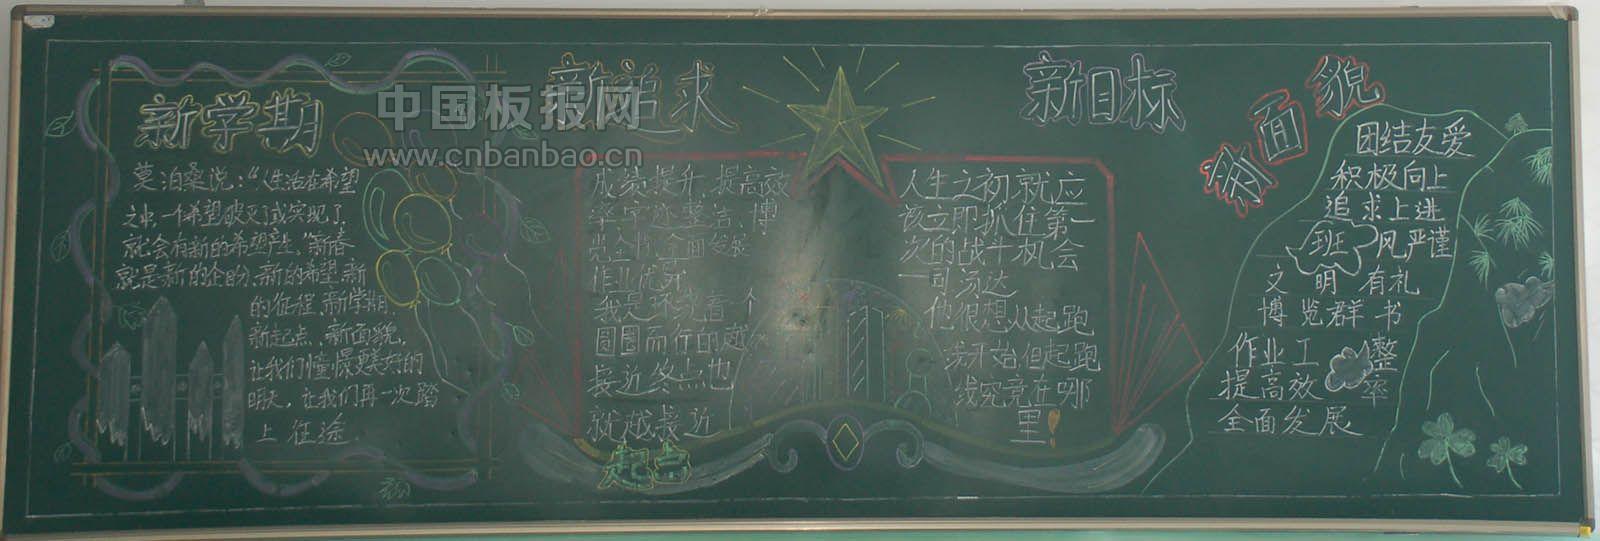 新学期
莫泊桑说:“人生活在希望
之中一个希望破灭了或实现了,
就会有新的希望产生。”新春
就是新的企盼、新的希望、新
的征程、新学期、
新起点、新面貌,
让我们憧憬更美好的
明天,让我们再一次踏
上征途
中国板报网
www.cnbanbao.cn
新追求
成绩提升,提高效
率,字迹整洁、博
览全优,全面发展
作业优秀
我是环绕着一个
圆圈而行的越
接近终点也
就越接近
起点
新目标
人生之初就应
该立即抓住第一
次的战斗机会
—司汤达
他很想从起跑
线开始,但起跑
线究竟在哪
里!
新面貌
团结友爱
积极向上
追求上进
班风严谨
文明有礼
博览群书
作业工整
提高效率
全面发展